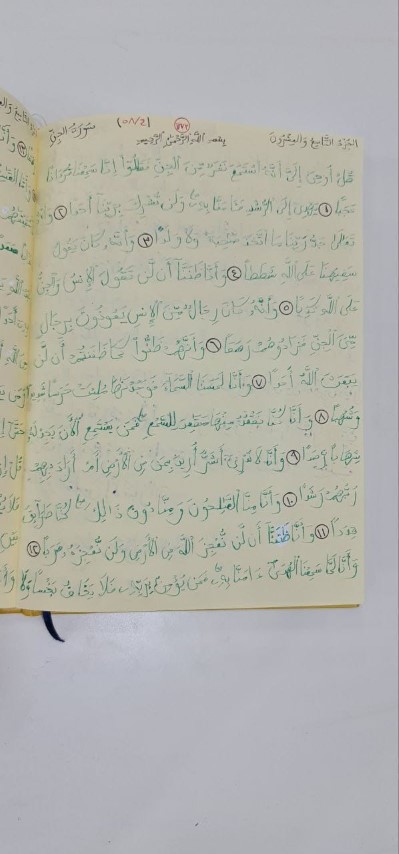 الجزء التاسع والعشرون
بسم الله الرحمن الرحيم
سورة الجن
قل أوحى إلى أنه استمع نفر من الجن فقالوا إنا سمعنا قرءانا
عجبا ١ يهدى إلى الرشد فءامنا به ولن نشرك بربنا أحدا ٢ وأنه
تعالى جد ربنا ما اتخذ صاحبة ولا ولدا ٣ وأنه كان يقول
سفيهنا على الله شططا ٤ وأنا ظننا أن لن تقول الإنس والجن
على الله كذبا ٥ وأنه كان رجال من الإنس يعوذون برجال
من الجن فزادوهم رهقا ٦ وأنهم ظنوا كما ظننتم أن لن
يبعث الله أحدا ٧ وأنا لمسنا السماء فوجدنها ملئت حرسا شديدا
وشهبا ٨ وأنا كنا نقعد منها مقعد للسمع فمن يستمع الأن يجد له
شهابا رصدا ٩ وأنا لا ندرى أشر أريد بمن فى الأرض أم أراد بهم
ربهم رشدا ١٠ وأنا منا الصلحون ومنا دون ذالك كنا طرآئق
قددا ١١ وأنا ظننا أن لن نعجز الله فى الأرض ولن نعجزه هربا ١٢
وأنا لما سمعنا الهدى ءامنا به فمن يؤمن بربه فلا يخاف بخسا ولا